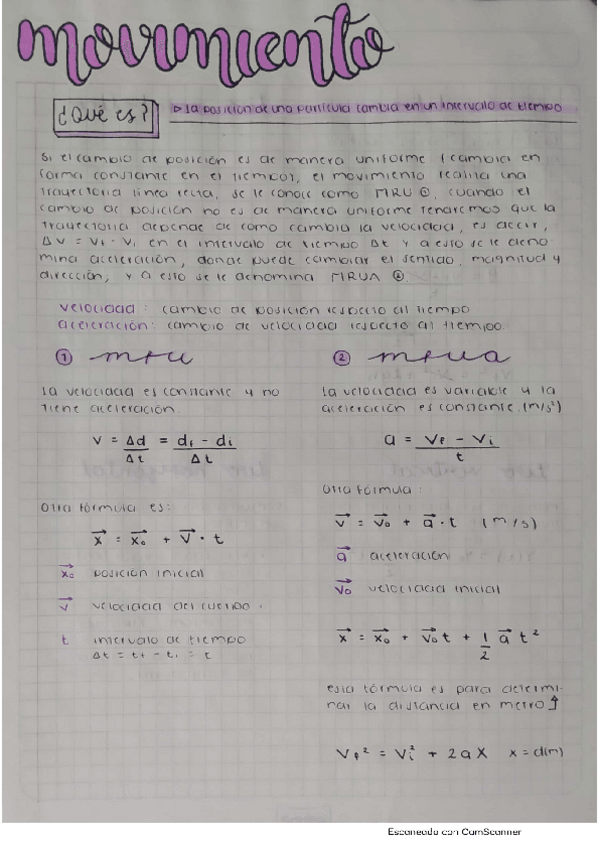 movimiento
¿Qué es?
▷ la posición de una partícula cambia en un intervalo de tiempo
Si el cambio de posición es de manera uniforme (cambia en
forma constante en el tiempo), el movimiento realiza una
trayectoria línea recta, se le conoce como MRU ①, cuando el
cambio de posición no es de manera uniforme tenaremos que la
trayectoria depende de como cambia la velocidad, es decir,
ΔV = Vf - Vi en el intervalo de tiempo Δt y a esto se le deno
mina aceleración, donde puede cambiar el sentido, magnitud y
dirección, y a esto se le denomina MRUA ②.
velocidad: cambio de posición respecto al tiempo
aceleración: cambio de velocidad respecto al tiempo.
① mru
la velocidad es constante y no
tiene aceleración.
v = Δd/Δt = (df - di)/Δt
Otra fórmula es:
x⃗ = x⃗₀ + v⃗ · t
x⃗₀ posición inicial
v⃗ velocidad del cuerpo.
t intervalo de tiempo
Δt = tf - ti = t
② mrua
la velocidad es variable y la
aceleración es constante (m/s²)
a = (Vf - Vi)/t
Otra fórmula:
v⃗ = v⃗₀ + a⃗ · t (m/s)
a⃗ aceleración
v⃗₀ velocidad inicial
x⃗ = x⃗₀ + v⃗₀t + 1/2 a⃗ t²
esta fórmula es para determi-
nar la distancia en metro ↑
Vf² = Vi² + 2aX x = d(m)
Escaneado con CamScanner